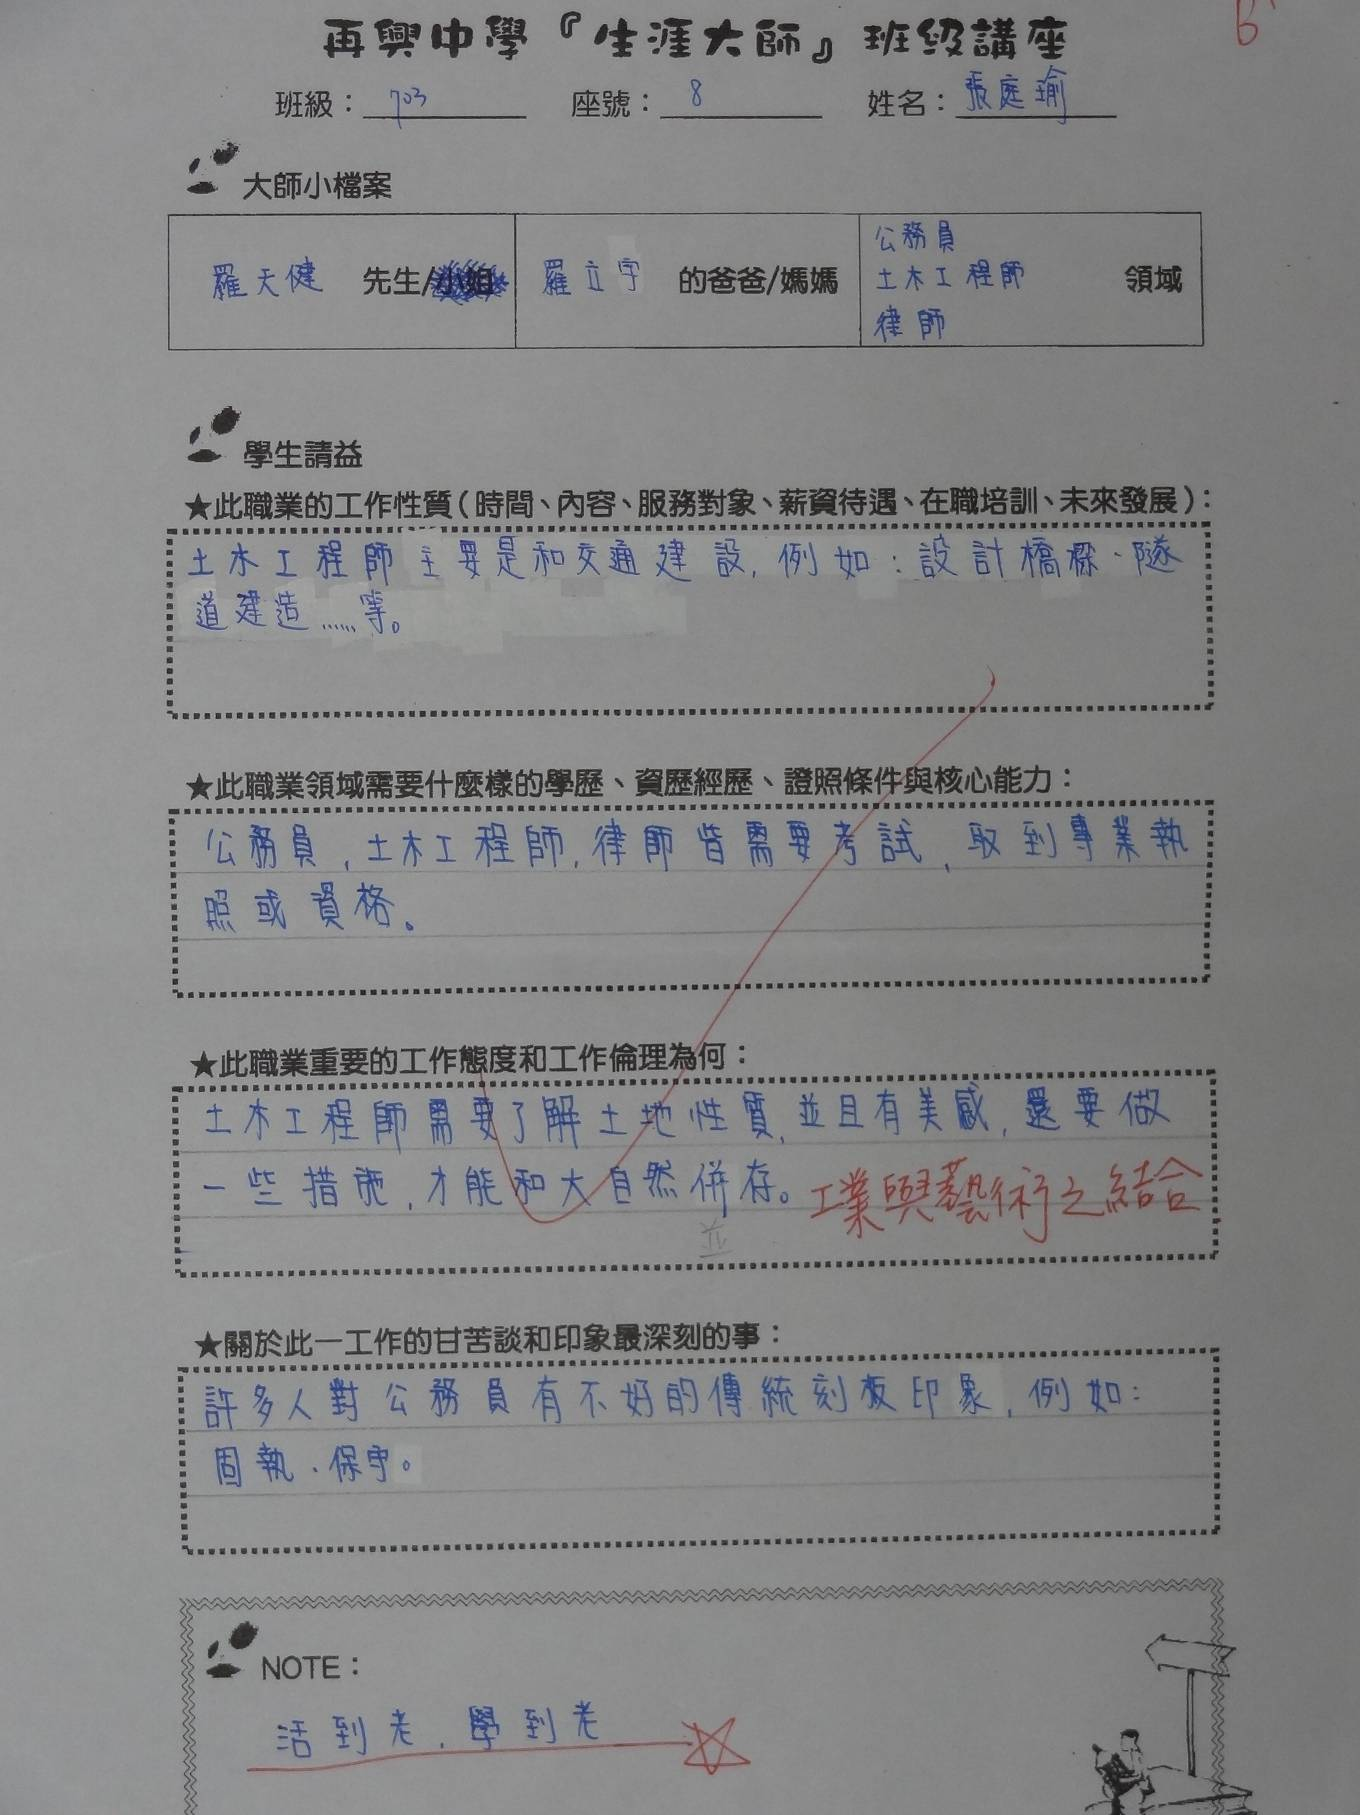 再興中學『生涯大師』班級講座
班級：703 座號：8 姓名：張庭瑜
大師小檔案
羅天健 先生/小姐 羅立宇 的爸爸/媽媽 公務員 土木工程師 律師 領域
學生請益
★此職業的工作性質（時間、內容、服務對象、薪資待遇、在職培訓、未來發展）：
土木工程師主要是和交通建設,例如:設計橋樑、隧
道建造……等。
★此職業領域需要什麼樣的學歷、資歷經歷、證照條件與核心能力：
公務員,土木工程師,律師皆需要考試,取到專業執
照或資格。
★此職業重要的工作態度和工作倫理為何：
土木工程師需要了解土地性質,並且有美感,還要做
一些措施,才能和大自然併存。工業與藝術之結合
並
★關於此一工作的甘苦談和印象最深刻的事：
許多人對公務員有不好的傳統刻板印象,例如:
固執、保守。
NOTE：
活到老,學到老